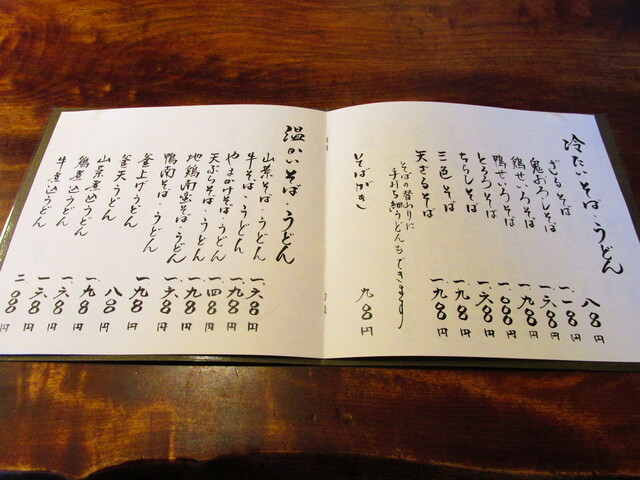 冷たいそば・うどん
ざるそば 八〇〇円
鬼おろしそば 一、一〇〇円
鶏せいろそば 一、六〇〇円
鴨せいろそば 一、九〇〇円
とろろそば 一、〇〇〇円
ちらしそば 一、六〇〇円
三色そば 一、九〇〇円
天ざるそば 一、九〇〇円
そばの替わりに
手打ち細うどんもできます
そばがき 九〇〇円
温かいそば・うどん
山菜そば・うどん 一、六〇〇円
牛そば・うどん 一、九〇〇円
やまかけそば・うどん 一、四〇〇円
天ぷらそば・うどん 一、九〇〇円
地鶏南蛮そば・うどん 一、六〇〇円
鴨南そば・うどん 一、九〇〇円
釜上げうどん 八〇〇円
釜天うどん 一、九〇〇円
山菜煮込うどん 一、六〇〇円
鶏煮込うどん 一、六〇〇円
牛煮込うどん 二、〇〇〇円